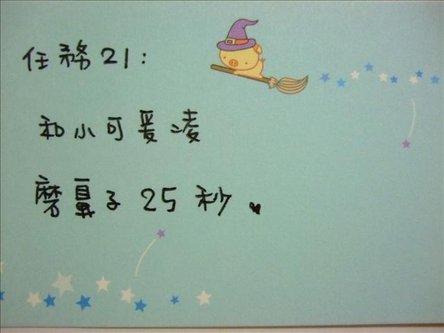 任務21:
和小可爰凌
磨鼻子25秒